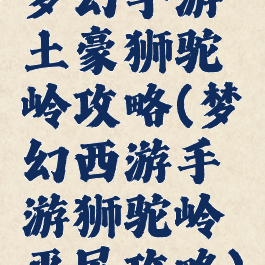 梦幻手游
土豪狮驼
岭攻略(梦
幻西游手
游狮驼岭
平民攻略)